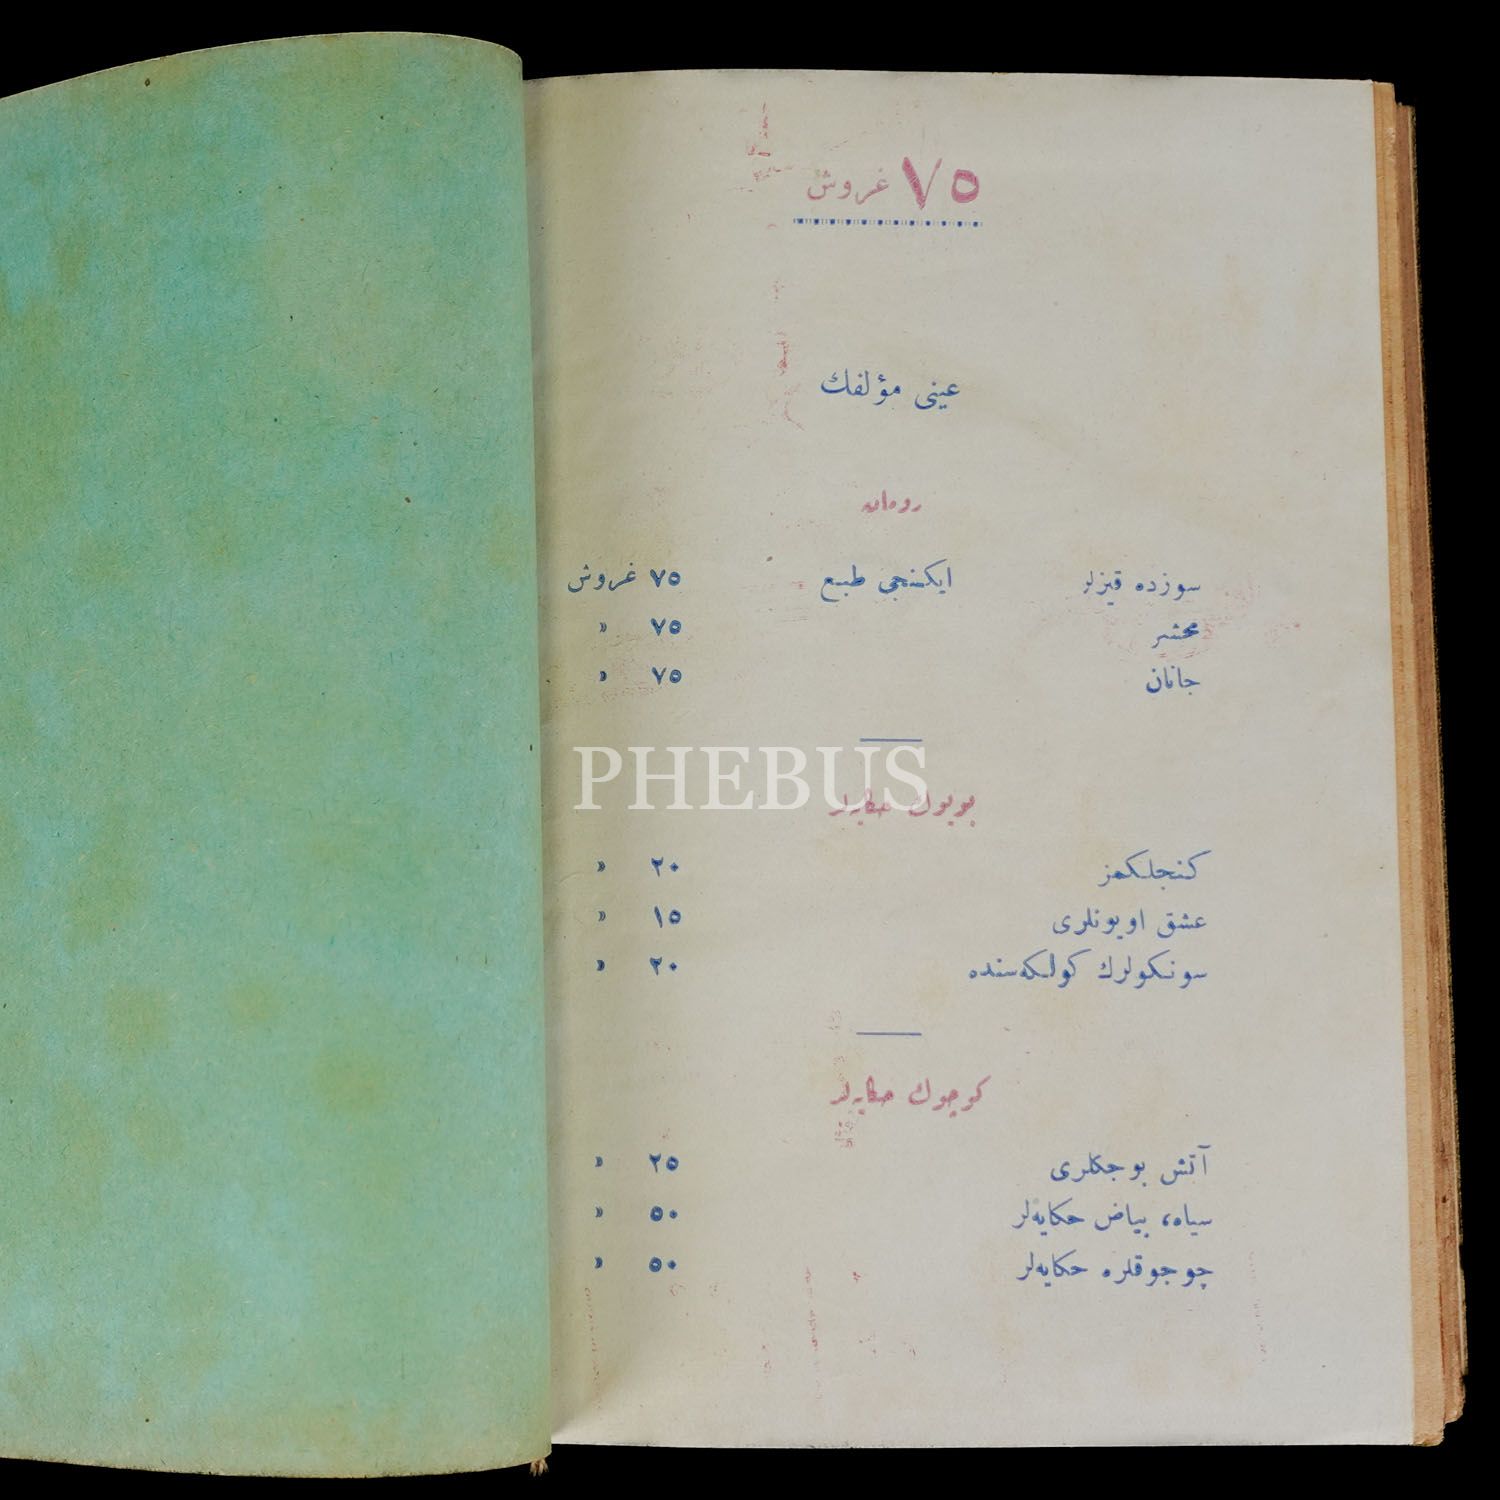 ٧٥ غروش
عینی مؤلفك
رومان
سوزده قیزلر ایکنجی طبع ٧٥ غروش
محشر ٧٥ »
جانان ٧٥ »
PHEBUS
بویوك حکایه‌لر
کنجلکمز ٢٠ »
عشق اویونلری ١٥ »
سونکولرك کولکه‌سنده ٢٠ »
کوچوك حکایه‌لر
آتش بوجکلری ٢٥ »
سیاه، بیاض حکایه‌لر ٥٠ »
چوجوقلره حکایه‌لر ٥٠ »